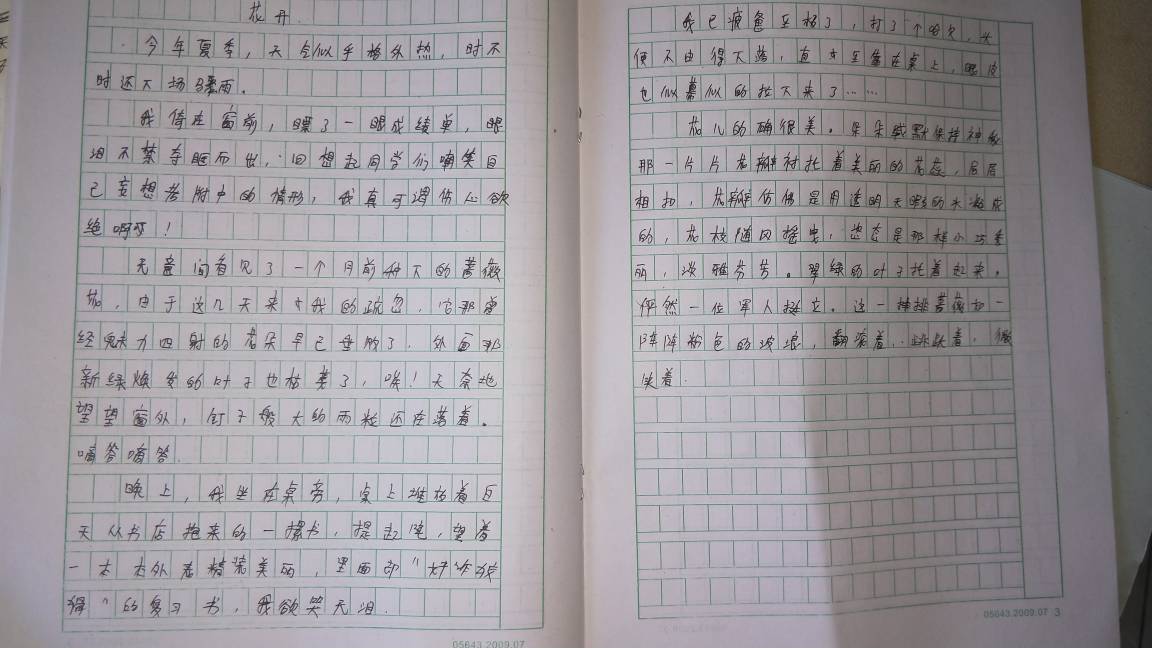 花开
今年夏季，天气似乎格外热，时不
时还下场骤雨。
我倚在窗前，瞟了一眼成绩单，眼
泪不禁夺眶而出，回想起同学们嘲笑自
己妄想考附中的情形，我真可谓伤心欲
绝啊！
无意间看见了一个月前种下的蔷薇
花，由于这几天来我的疏忽，它那曾
经魅力四射的花朵早已垂败了，外面那
新绿焕发的叶子也枯萎了，唉！天奈地
望望窗外，钉子般大的雨粒还在落着。
嘀答嘀答
晚上，我坐在桌旁，桌上堆放着白
天从书店抱来的一摞书，提起笔，望着
一本本外表精装美丽，里面却"
"的复习书，我欲哭无泪
我已疲惫至极了，打了个哈欠，头
便不由得下落，直至落在桌上，眼皮
也似幕似的拉下来了……
花儿的确很美。朵朵
那一片片花瓣衬托着美丽的花蕊，层层
相扣，花瓣仿佛是用透明无瑕的水凝成
的，花枝随风摇曳，姿态是那样小巧秀
丽，淡雅芬芳。翠绿的叶子托着起来。
俨然一位军人挺立。这一排排蔷薇如一
阵阵粉色的波浪，翻滚着，跳跃着，微
笑着
05643.2009.07
05643.2009.07 3